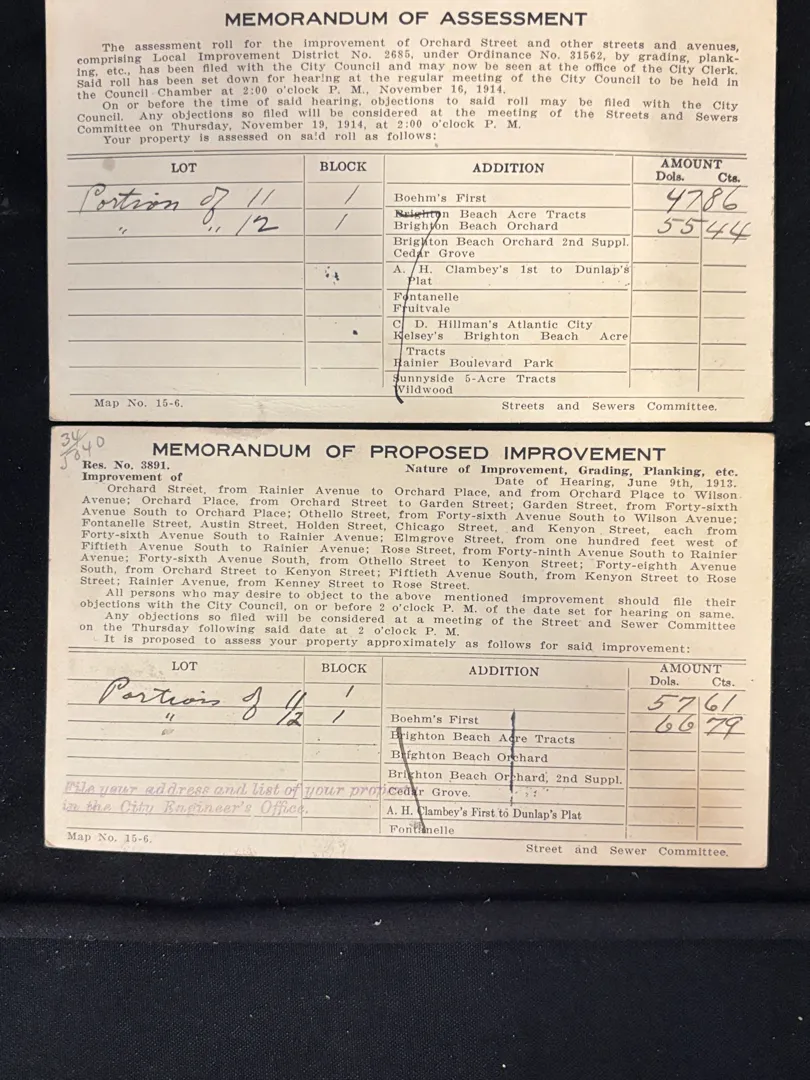 MEMORANDUM OF ASSESSMENT
The assessment roll for the improvement of Orchard Street and other streets and avenues,
comprising Local Improvement District No. 2685, under Ordinance No. 31562, by grading, plank-
ing, etc., has been filed with the City Council and may now be seen at the office of the City Clerk.
Said roll has been set down for hearing at the regular meeting of the City Council to be held in
the Council Chamber at 2:00 o'clock P. M., November 16, 1914.
On or before the time of said hearing, objections to said roll may be filed with the City
Council. Any objections so filed will be considered at the meeting of the Streets and Sewers
Committee on Thursday, November 19, 1914, at 2:00 o'clock P. M.
Your property is assessed on said roll as follows:
LOT BLOCK ADDITION AMOUNT
Dols. Cts.
Portion of 11 1 Boehm's First 47 86
Brighton Beach Acre Tracts
" " 12 1 Brighton Beach Orchard 55 44
Brighton Beach Orchard 2nd Suppl.
Cedar Grove
A. H. Clambey's 1st to Dunlap's
Plat
Fontanelle
Fruitvale
C. D. Hillman's Atlantic City
Kelsey's Brighton Beach Acre
Tracts
Rainier Boulevard Park
Sunnyside 5-Acre Tracts
Wildwood
Map No. 15-6. Streets and Sewers Committee.
MEMORANDUM OF PROPOSED IMPROVEMENT
Res. No. 3891. Nature of Improvement, Grading, Planking, etc.
Improvement of Date of Hearing, June 9th, 1913.
Orchard Street, from Rainier Avenue to Orchard Place, and from Orchard Place to Wilson
Avenue; Orchard Place, from Orchard Street to Garden Street; Garden Street, from Forty-sixth
Avenue South to Orchard Place; Othello Street, from Forty-sixth Avenue South to Wilson Avenue;
Fontanelle Street, Austin Street, Holden Street, Chicago Street, and Kenyon Street, each from
Forty-sixth Avenue South to Rainier Avenue; Elmgrove Street, from one hundred feet west of
Fiftieth Avenue South to Rainier Avenue; Rose Street, from Forty-ninth Avenue South to Rainier
Avenue; Forty-sixth Avenue South, from Othello Street to Kenyon Street; Forty-eighth Avenue
South, from Orchard Street to Kenyon Street; Fiftieth Avenue South, from Kenyon Street to Rose
Street; Rainier Avenue, from Kenney Street to Rose Street.
All persons who may desire to object to the above mentioned improvement should file their
objections with the City Council, on or before 2 o'clock P. M. of the date set for hearing on same.
Any objections so filed will be considered at a meeting of the Street and Sewer Committee
on the Thursday following said date at 2 o'clock P. M.
It is proposed to assess your property approximately as follows for said improvement:
LOT BLOCK ADDITION AMOUNT
Dols. Cts.
Portion of 11 1 57 61
" 12 1 Boehm's First 66 79
Brighton Beach Acre Tracts
Brighton Beach Orchard
Brighton Beach Orchard, 2nd Suppl.
File your address and list of your Cedar Grove.
in the City Engineer's Office. A. H. Clambey's First to Dunlap's Plat
Fontanelle
Map No. 15-6. Street and Sewer Committee.